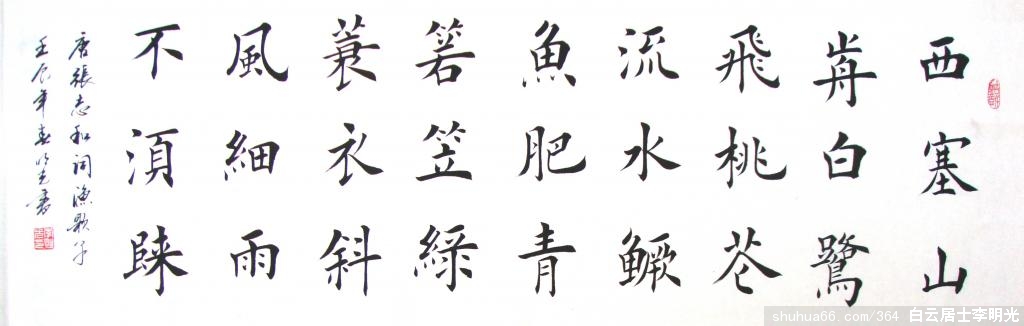 西塞山
歬白鷺
飛桃花
流水鱖
魚肥青
箬笠緑
蓑衣斜
風細雨
不湏歸
唐張志和詞漁歌子
壬辰年春明光書
shuhua66.com/364 白云居士李明光